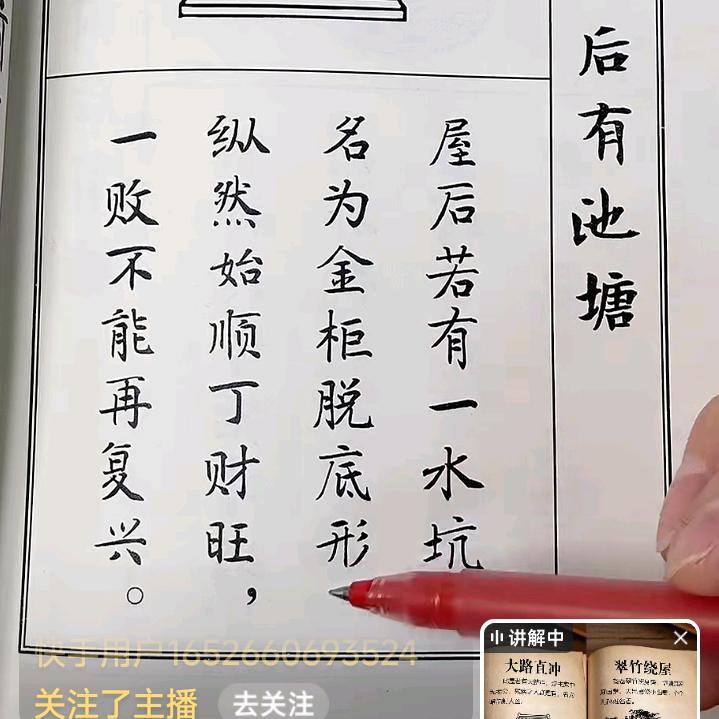 后有池塘
屋后若有一水坑
名为金柜脱底形
纵然始顺丁财旺，
一败不能再复兴。
快手用户1652660693524
关注了主播
去关注
讲解中
大路直冲
翠竹绕屋